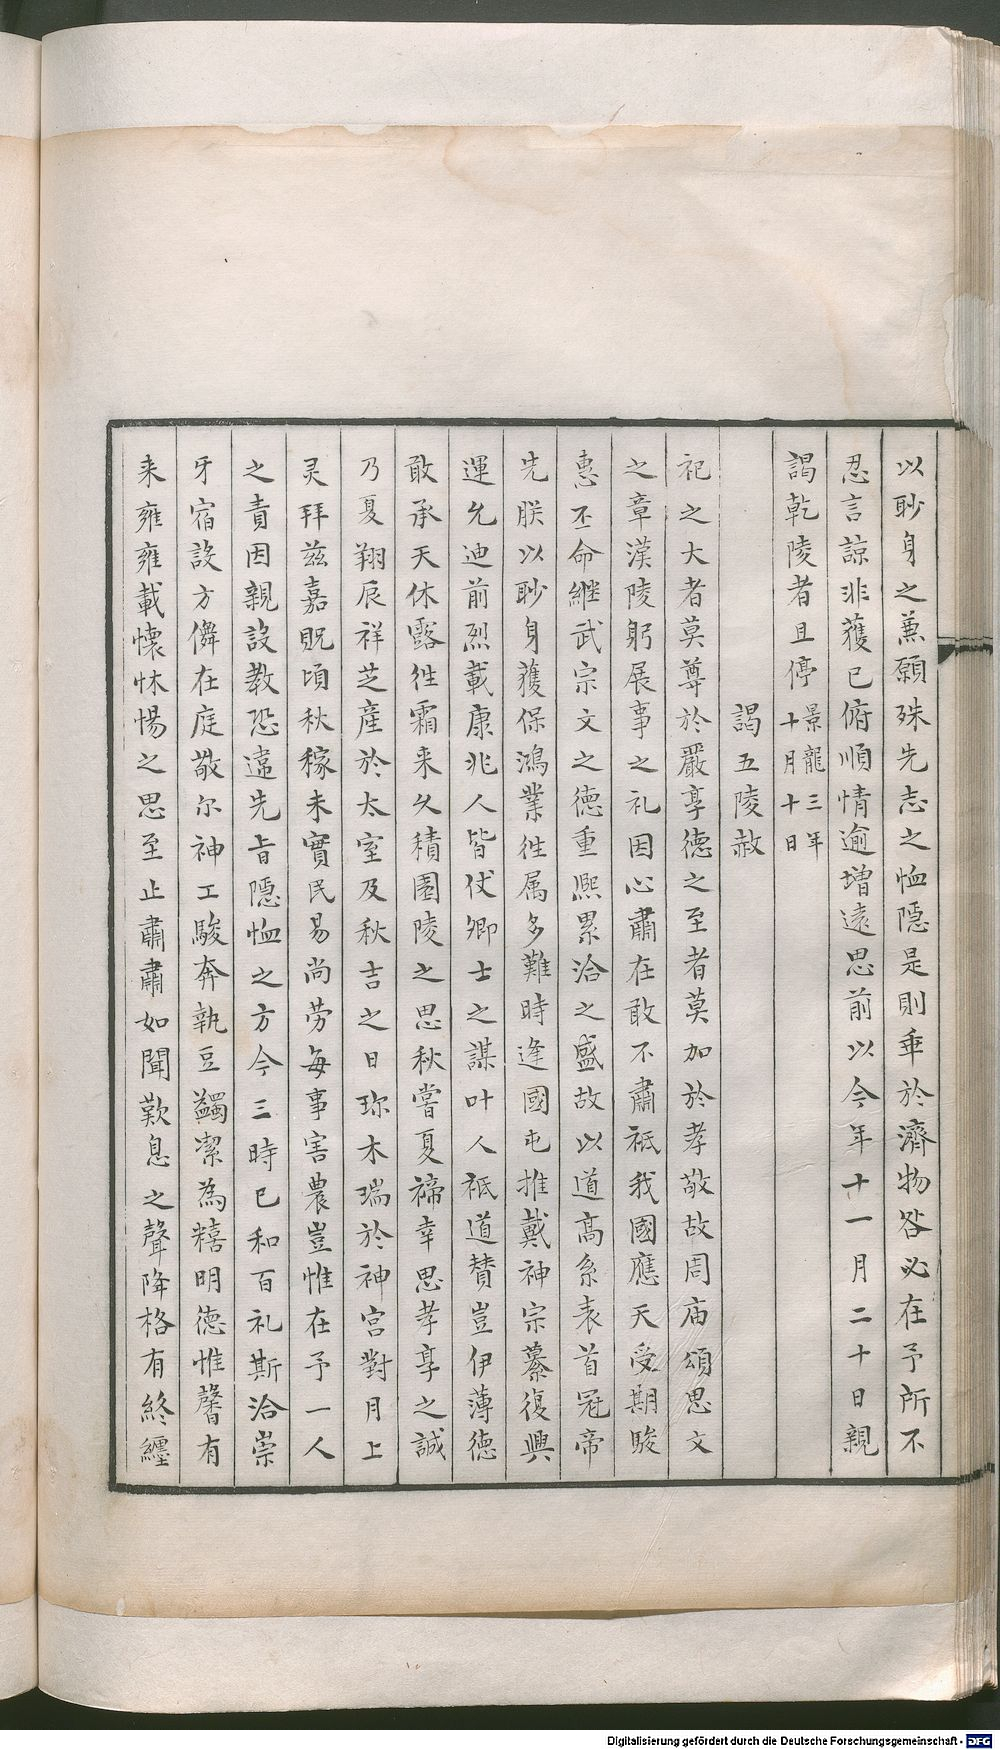 以眇身之藨願殊先志之恤隱是則乖於濟物咎必在予所不
忍言諒非獲已俯順情逾增遠思前以今年十一月二十日親
謁乾陵者且停景龍三年十月十日
謁五陵赦
祀之大者莫尊於嚴享德之至者莫加於孝敬故周庙頌思文
之章漢陵躬展事之礼因心肅在敢不肅祗我國應天受期駿
惠丕命継武宗文之德重熙累洽之盛故以道高系表首冠帝
先朕以眇身獲保鴻業徃属多難時逢國屯推戴神宗纂復興
運允迪前烈載康兆人皆仗卿士之謀叶人祗道賛豈伊薄德
敢承天休露徃霜来久積園陵之思秋嘗夏禘幸思孝享之誠
乃夏翔辰祥芝產於太室及秋吉之日珎木瑞於神宮對月上
灵拜兹嘉貺頃秋稼未實民易尚劳每事害農豈惟在予一人
之責因親設教恐違先旨隱恤之方今三時已和百礼斯洽崇
牙宿設方儛在庭敬尔神工駿奔執豆蠲潔為糦明德惟馨有
来雍雍載懐怵惕之思至止肅肅如聞歎息之聲降格有終纒
Digitalisierung gefördert durch die Deutsche Forschungsgemeinschaft - DFG